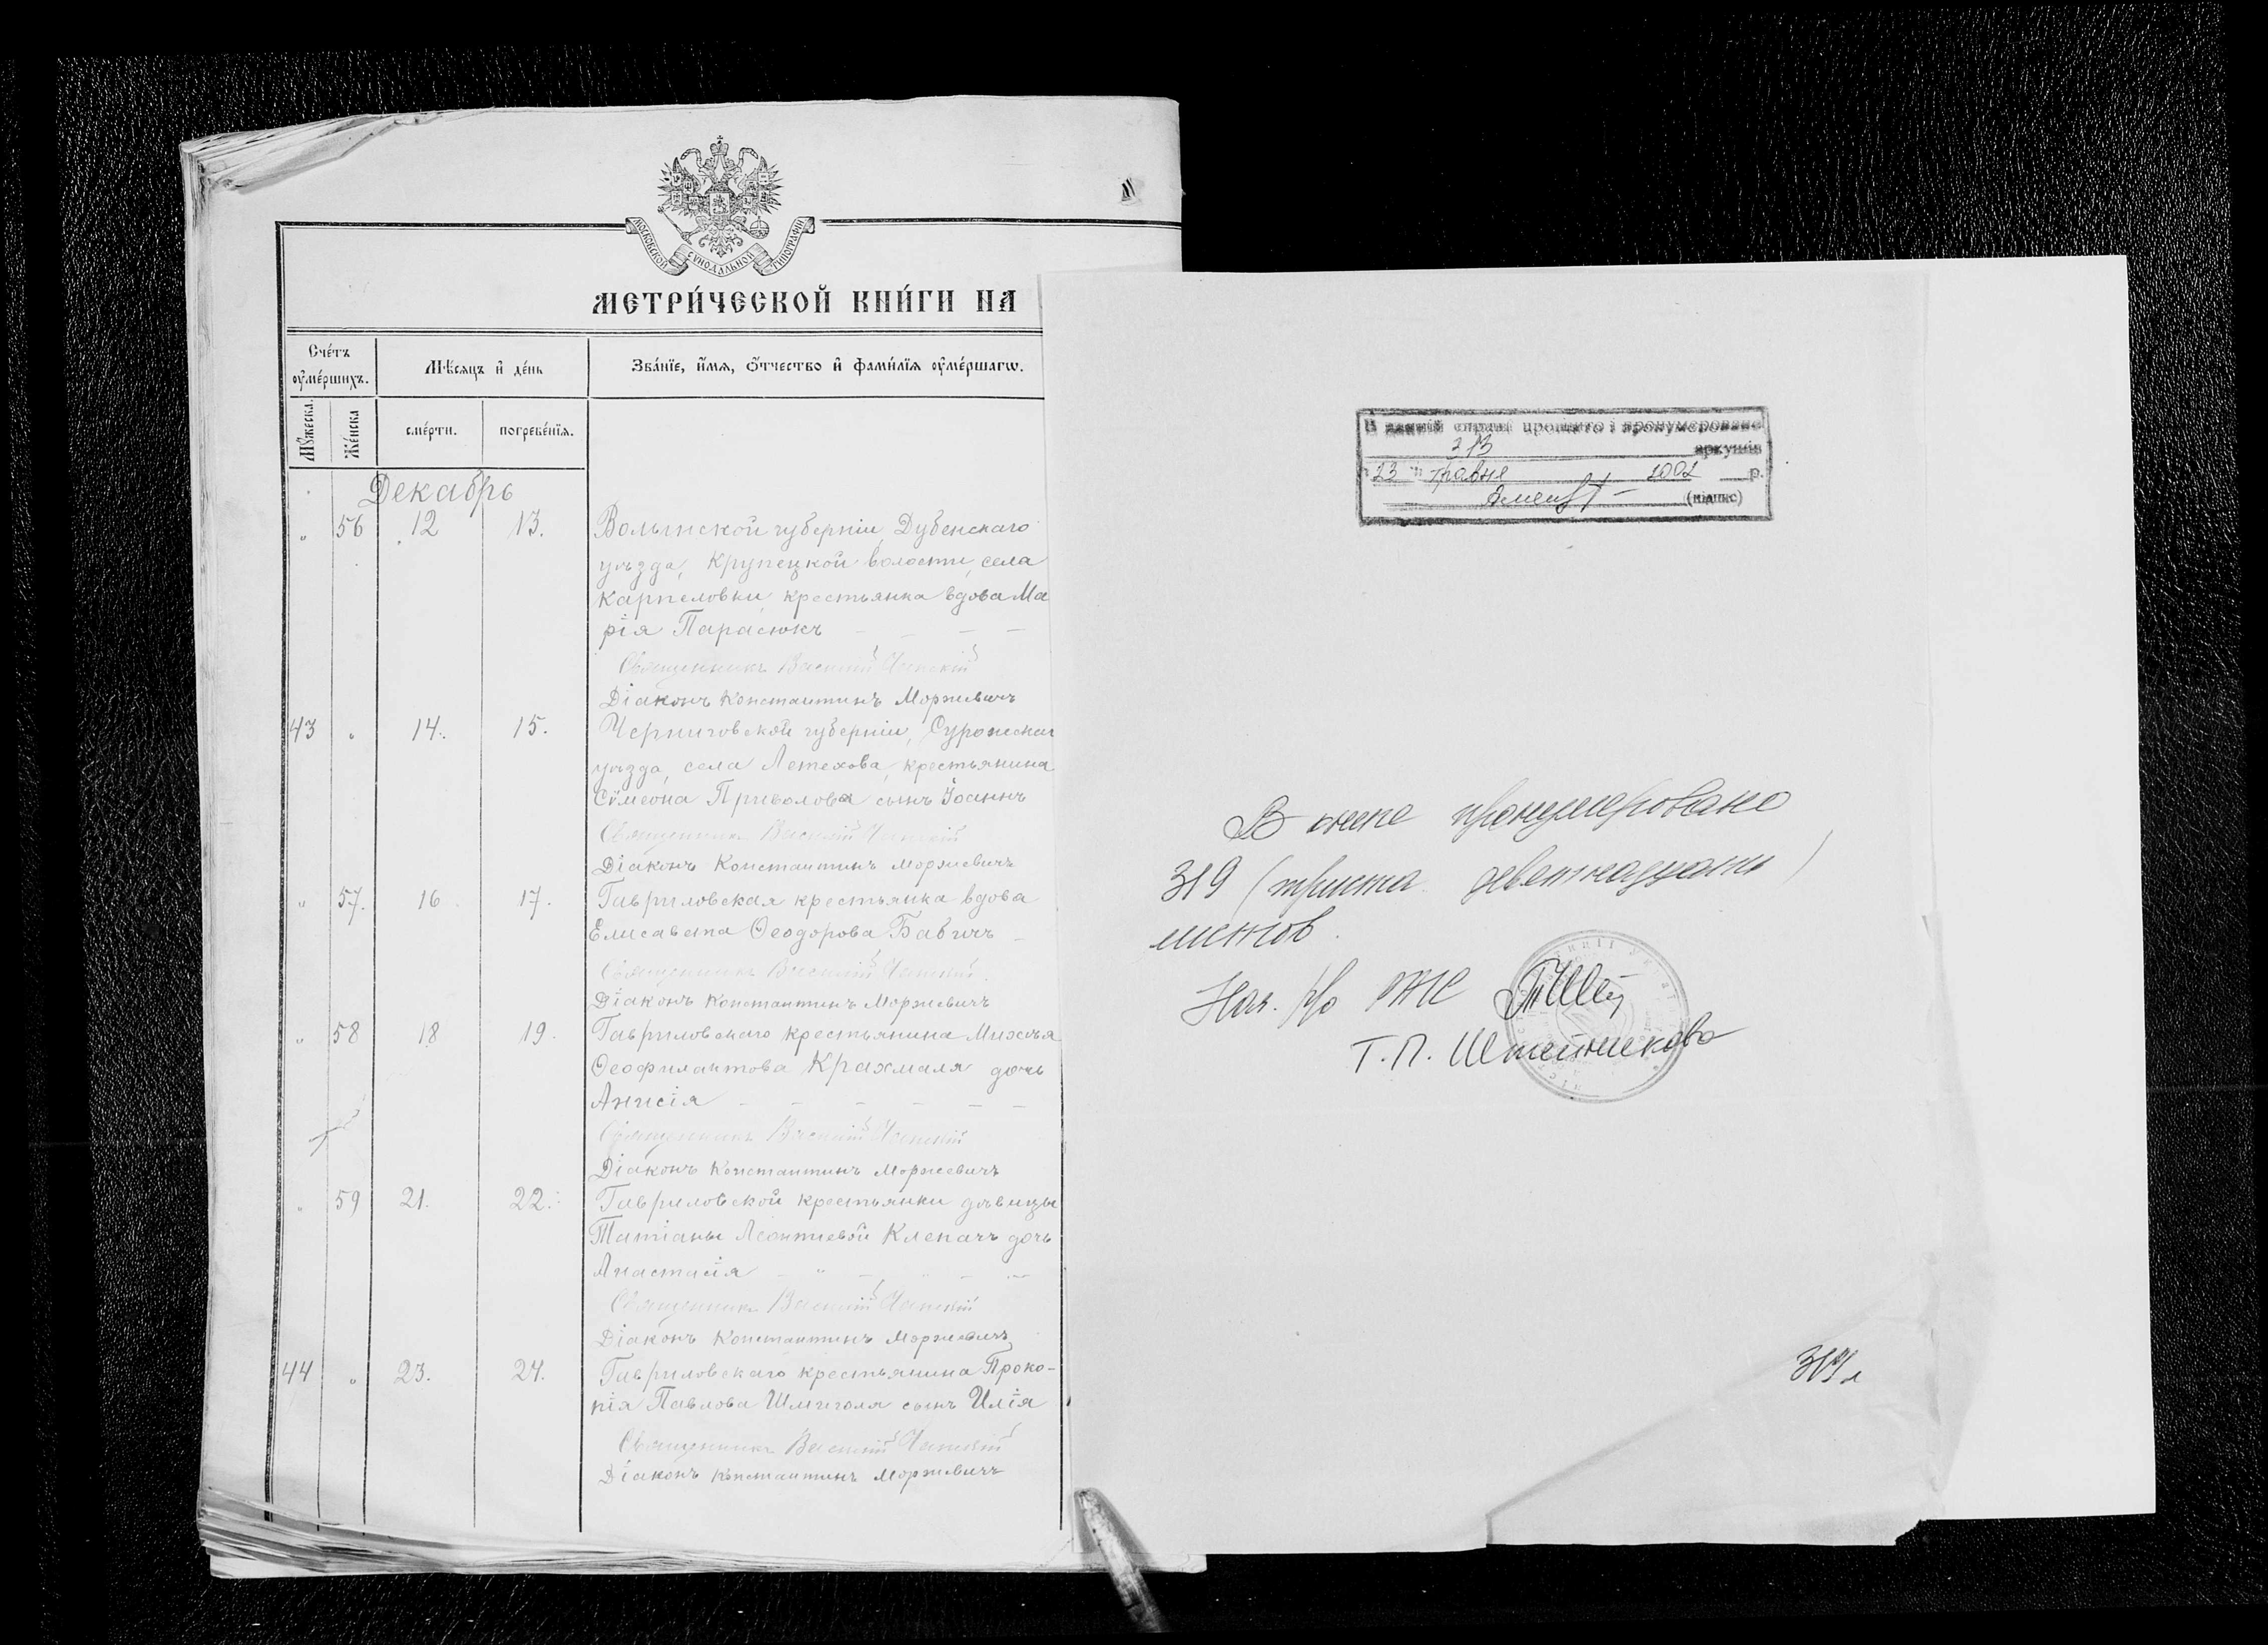 МОСКОВСКОЙ СѴНОДАЛЬНОЙ ТИПОГРАФІИ
МЕТРИ́ЧЕСКОЙ КНИ́ГИ НА
Сче́тъ оу҆ме́ршихъ.
Мѣ́сяцъ и҆ де́нь
Зва́нїе, и҆́мѧ, ѻ҆́тчество и҆ фами́лїѧ оу҆ме́ршагѡ.
Мꙋ́жеска.
Же́нска
сме́рти.
погребе́нїѧ.
Декабрь
„ 56 12 13. Волынской губерніи, Дубенскаго
уѣзда, Крупецкой волости, села
Карпеловки, крестьянка вдова Ма
рія Парасюкъ
Священникъ Василій
Діаконъ Константинъ Моржевичъ
43 „ 14. 15. Черниговской губерніи,
уѣзда, села Летехова, крестьянина
Сѵмеона Приволова сынъ Іоаннъ
Священникъ Василій
Діаконъ Константинъ Моржевичъ
„ 57. 16 17. Гавриловская крестьянка вдова
Елисавета Ѳеодорова Бабичъ
Священникъ Василій
Діаконъ Константинъ Моржевичъ
„ 58 18 19. Гавриловскаго крестьянина
Ѳеофилактова Крахмаля дочь
Анисія
Священникъ Василій
Діаконъ Константинъ Моржевичъ
„ 59 21. 22. Гавриловской крестьянки дѣвицы
Татіаны Леонтіевой Клепачъ дочь
Анастасія
Священникъ Василій
Діаконъ Константинъ Моржевичъ
44 „ 23. 24. Гавриловскаго крестьянина Проко-
пія Павлова Шмиголя сынъ Илія
Священникъ Василій
Діаконъ Константинъ Моржевичъ
В даній справі прошито і пронумеровано
313 аркушів
"23" травня 2002 р.
(підпис)
В книге пронумеровано
319 (триста девятнадцать)
листов.
Нач.
Т.П.
319 л